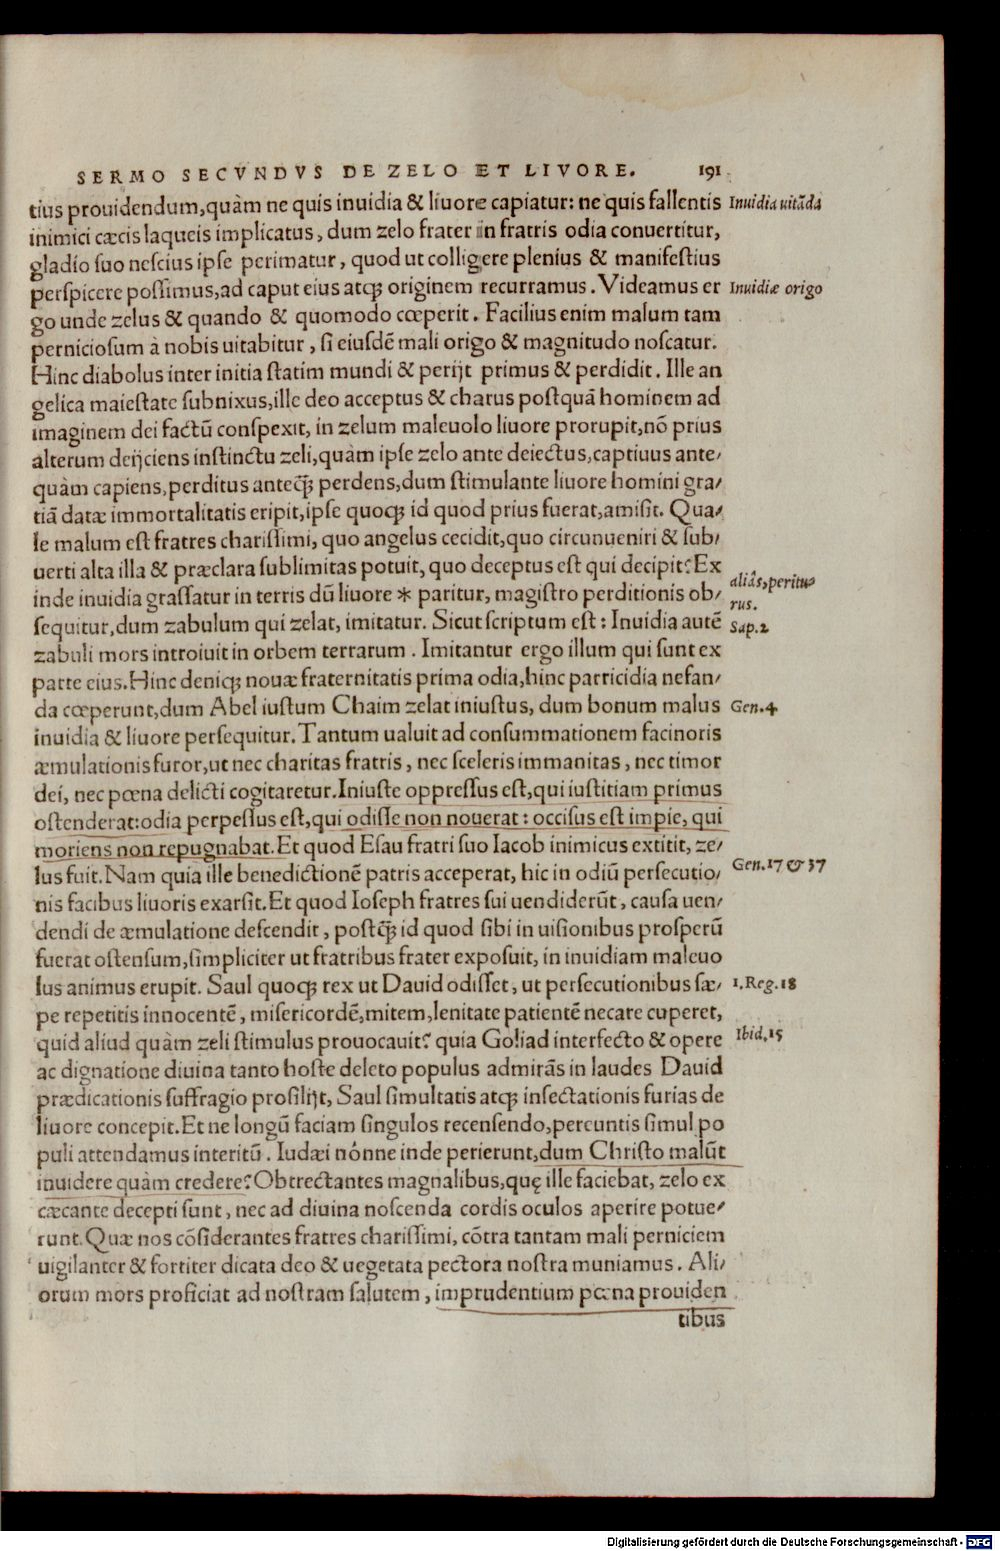 SERMO SECVNDVS DE ZELO ET LIVORE. 191
tius prouidendum,quàm ne quis inuidia & liuore capiatur: ne quis fallentis Inuidia uitãda
inimici cæcis laqueis implicatus, dum zelo frater in fratris odia conuertitur,
gladio suo nescius ipse perimatur, quod ut colligere plenius & manifestius
perspicere possimus,ad caput eius atq; originem recurramus. Videamus er Inuidiæ origo
go unde zelus & quando & quomodo cœperit. Facilius enim malum tam
perniciosum à nobis uitabitur, si eiusdẽ mali origo & magnitudo noscatur.
Hinc diabolus inter initia statim mundi & perijt primus & perdidit. Ille an
gelica maiestate subnixus,ille deo acceptus & charus postquã hominem ad
imaginem dei factũ conspexit, in zelum maleuolo liuore prorupit,nõ prius
alterum deijciens instinctu zeli,quàm ipse zelo ante deiectus,captiuus ante/
quàm capiens,perditus anteq̃; perdens,dum stimulante liuore homini gra/
tiã datæ immortalitatis eripit,ipse quoq; id quod prius fuerat,amisit. Qua/
le malum est fratres charissimi, quo angelus cecidit,quo circunueniri & sub/
uerti alta illa & præclara sublimitas potuit, quo deceptus est qui decipit? Ex
inde inuidia grassatur in terris dũ liuore * paritur, magistro perditionis ob/ aliâs,peritu/
rus.
sequitur,dum zabulum qui zelat, imitatur. Sicut scriptum est: Inuidia autẽ Sap.2
zabuli mors introiuit in orbem terrarum. Imitantur ergo illum qui sunt ex
parte eius.Hinc deniq; nouæ fraternitatis prima odia,hinc parricidia nefan/
da cœperunt,dum Abel iustum Chaim zelat iniustus, dum bonum malus Gen.4
inuidia & liuore persequitur. Tantum ualuit ad consummationem facinoris
æmulationis furor,ut nec charitas fratris, nec sceleris immanitas, nec timor
dei, nec pœna delicti cogitaretur.Iniuste oppressus est,qui iustitiam primus
ostenderat:odia perpessus est,qui odisse non nouerat: occisus est impie, qui
moriens non repugnabat.Et quod Esau fratri suo Iacob inimicus extitit, ze/
lus fuit. Nam quia ille benedictionẽ patris acceperat, hic in odiũ persecutio/ Gen.17 & 37
nis facibus liuoris exarsit.Et quod Ioseph fratres sui uendiderũt, causa uen/
dendi de æmulatione descendit, postq̃; id quod sibi in uisionibus prosperũ
fuerat ostensum,simpliciter ut fratribus frater exposuit, in inuidiam maleuo
lus animus erupit. Saul quoq; rex ut Dauid odisset, ut persecutionibus sæ/ 1.Reg.18
pe repetitis innocentẽ, misericordẽ,mitem,lenitate patientẽ necare cuperet,
quid aliud quàm zeli stimulus prouocauit? quia Goliad interfecto & opere Ibid.15
ac dignatione diuina tanto hoste deleto populus admirãs in laudes Dauid
prædicationis suffragio prosilijt, Saul simultatis atq; insectationis furias de
liuore concepit.Et ne longũ faciam singulos recensendo,pereuntis simul po
puli attendamus interitũ. Iudæi nónne inde perierunt,dum Christo malũt
inuidere quàm credere? Obtrectantes magnalibus,quę ille faciebat, zelo ex
cæcante decepti sunt, nec ad diuina noscenda cordis oculos aperire potue/
runt. Quæ nos cõsiderantes fratres charissimi, cõtra tantam mali perniciem
uigilanter & fortiter dicata deo & uegetata pectora nostra muniamus. Ali/
orum mors proficiat ad nostram salutem, imprudentium pœna prouiden
tibus
Digitalisierung gefördert durch die Deutsche Forschungsgemeinschaft - DFG